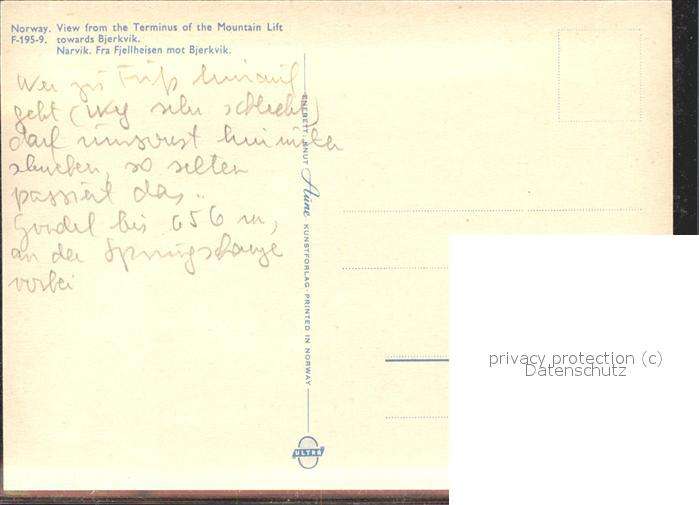 Norway. View from the Terminus of the Mountain Lift
F-195-9. towards Bjerkvik.
Narvik. Fra Fjellheisen mot Bjerkvik.
Wer zu Fuß hinauf
geht (Weg sehr schlecht)
darf umsonst hinunter
so selten
passiert das..
Gondel bis 656 m,
an der Sprungschanze
vorbei
ENERETT: KNUT Aune KUNSTFORLAG · PRINTED IN NORWAY
ULTRA
privacy protection (c)
Datenschutz